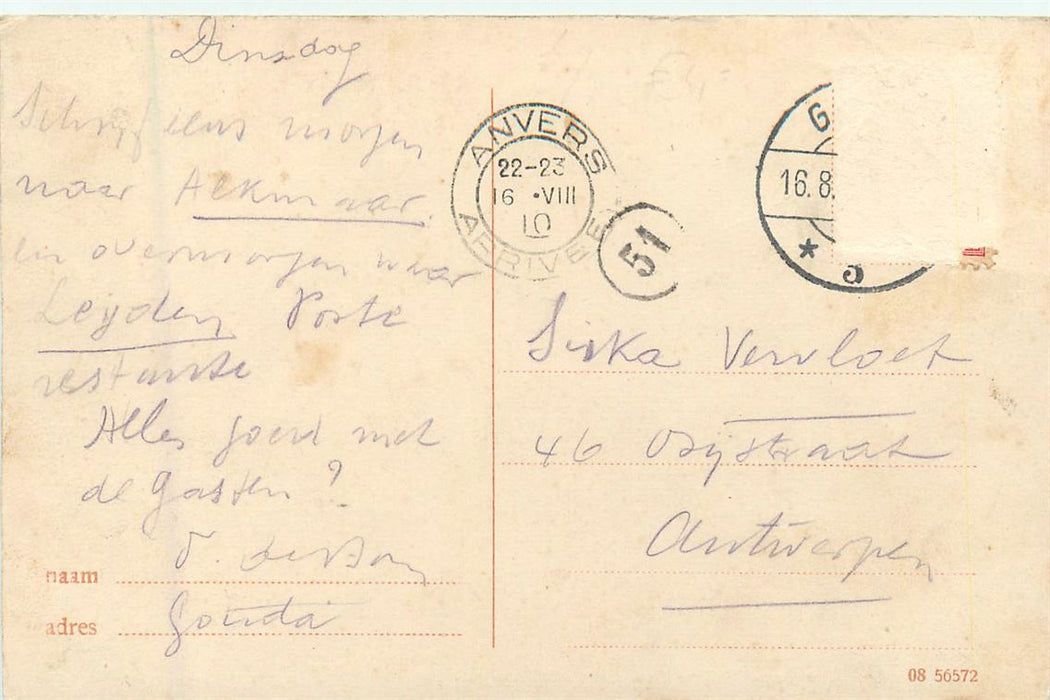 Dinsdag
Schrijf eens morgen
naar Alkmaar.
en overmorgen naar
Leyden Poste
restante
Alles goed met
de gasten?
naam
adres Gouda
ANVERS
22-23
16 •VIII
10
ARRIVEE
51
G
16.8.
* 5
Siska Vervloet
46 Osystraat
Antwerpen
08 56572